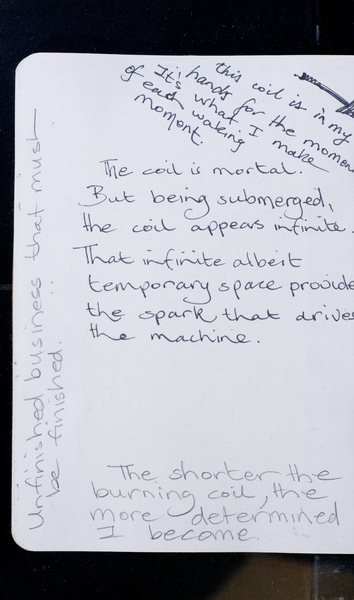 this coil is in my
hands for the momen
It's what I make
of each waking
moment.
The coil is mortal.
But being submerged,
the coil appears infinite.
That infinite albeit
temporary space provide
the spark that drives
the machine.
Unfinished business that must
be finished.
The shorter the
burning coil, the
more determined
I become